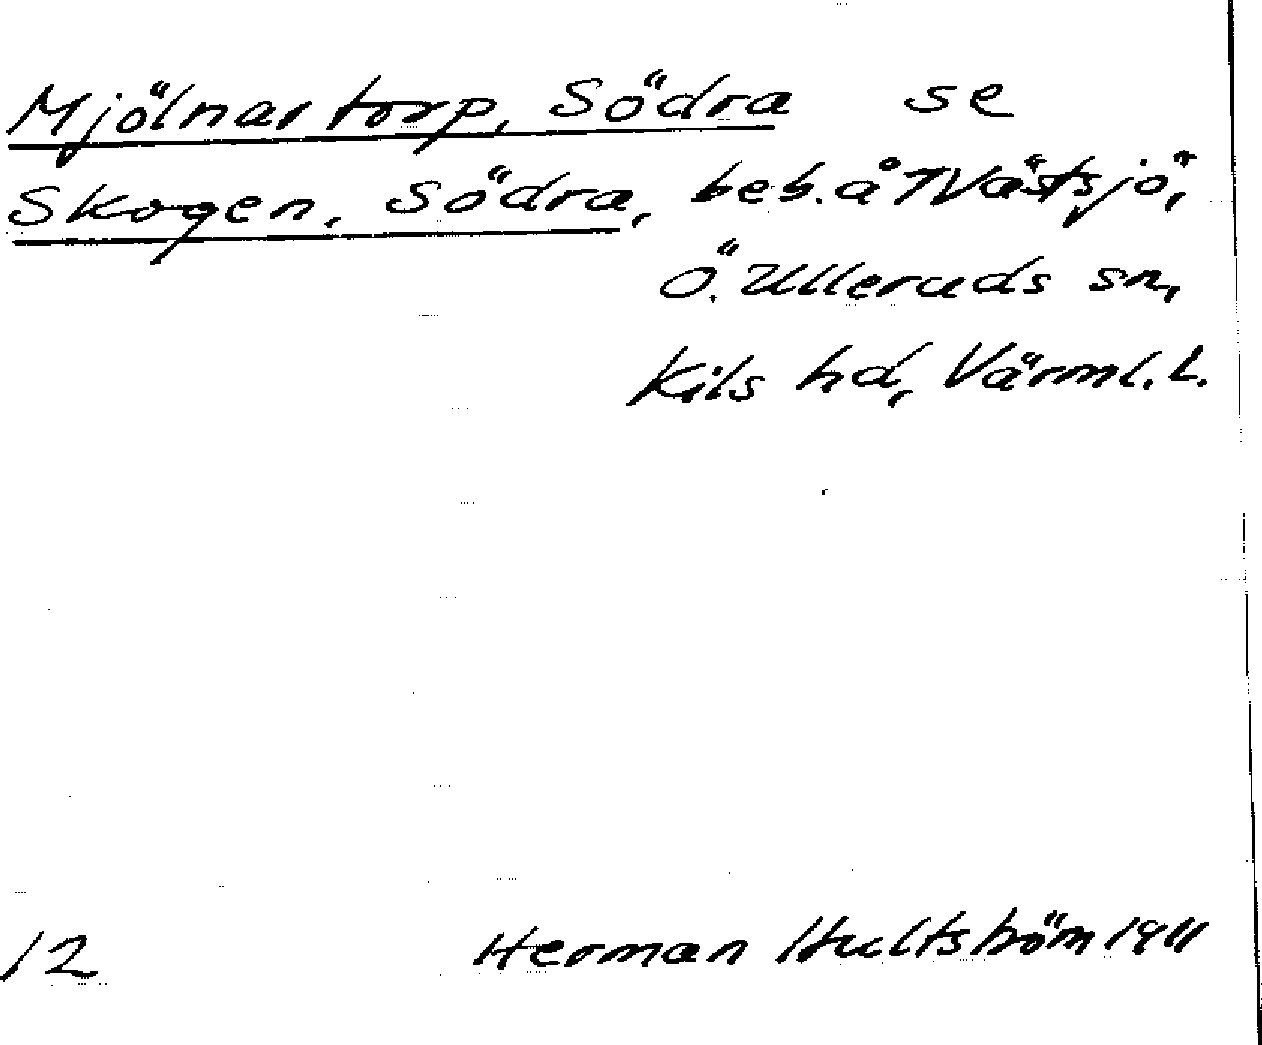 Mjölnartorp, Södra se
Skogen, Södra, beb. å Västsjö,
Ö. Ulleruds sn,
Kils hd, Värml. L.
12 Herman Hultström 1911